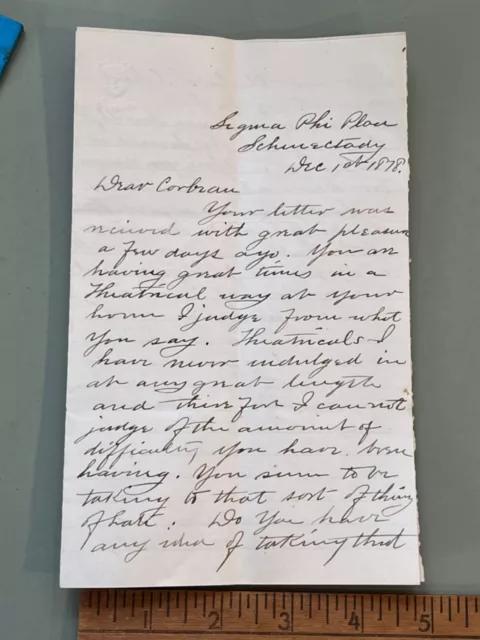 Sigma Phi Place
Schenectady
Dec 1st 1878.
Dear Corbeau
Your letter was
received with great pleasure
a few days ago. You are
having great times in a
theatrical way at your
home I judge from what
you say. Theatricals I
have never indulged in
at any great length
and therefore I can not
judge of the amount of
difficulty you have been
having. You seem to be
taking to that sort of thing
of late. Do you have
any idea of taking that
1 2 3 4 5